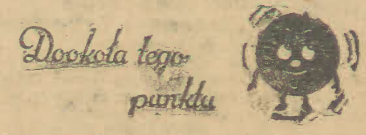 Dookoła tego
punktu